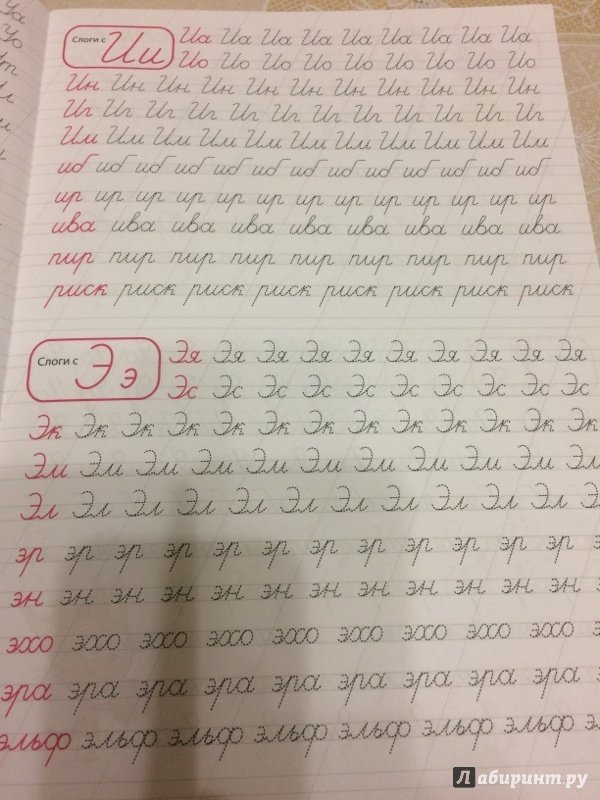 Слоги с Ии
Иа Иа Иа Иа Иа Иа Иа Иа Иа
Ио Ио Ио Ио Ио Ио Ио Ио Ио
Ин Ин Ин Ин Ин Ин Ин Ин Ин Ин Ин
Иг Иг Иг Иг Иг Иг Иг Иг Иг Иг Иг Иг
Им Им Им Им Им Им Им Им Им Им Им
иб иб иб иб иб иб иб иб иб иб иб иб иб
ир ир ир ир ир ир ир ир ир ир ир ир ир
ива ива ива ива ива ива ива ива ива
пир пир пир пир пир пир пир пир пир
риск риск риск риск риск риск риск риск
Слоги с Ээ
Эя Эя Эя Эя Эя Эя Эя Эя Эя Эя
Эс Эс Эс Эс Эс Эс Эс Эс Эс Эс
Эк Эк Эк Эк Эк Эк Эк Эк Эк Эк Эк Эк Эк
Эм Эм Эм Эм Эм Эм Эм Эм Эм Эм Эм
Эл Эл Эл Эл Эл Эл Эл Эл Эл Эл Эл Эл
эр эр эр эр эр эр эр эр эр эр эр эр
эн эн эн эн эн эн эн эн эн эн эн эн
эхо эхо эхо эхо эхо эхо эхо эхо эхо
эра эра эра эра эра эра эра эра эра
эльф эльф эльф эльф эльф эльф эльф
Лабиринт.ру